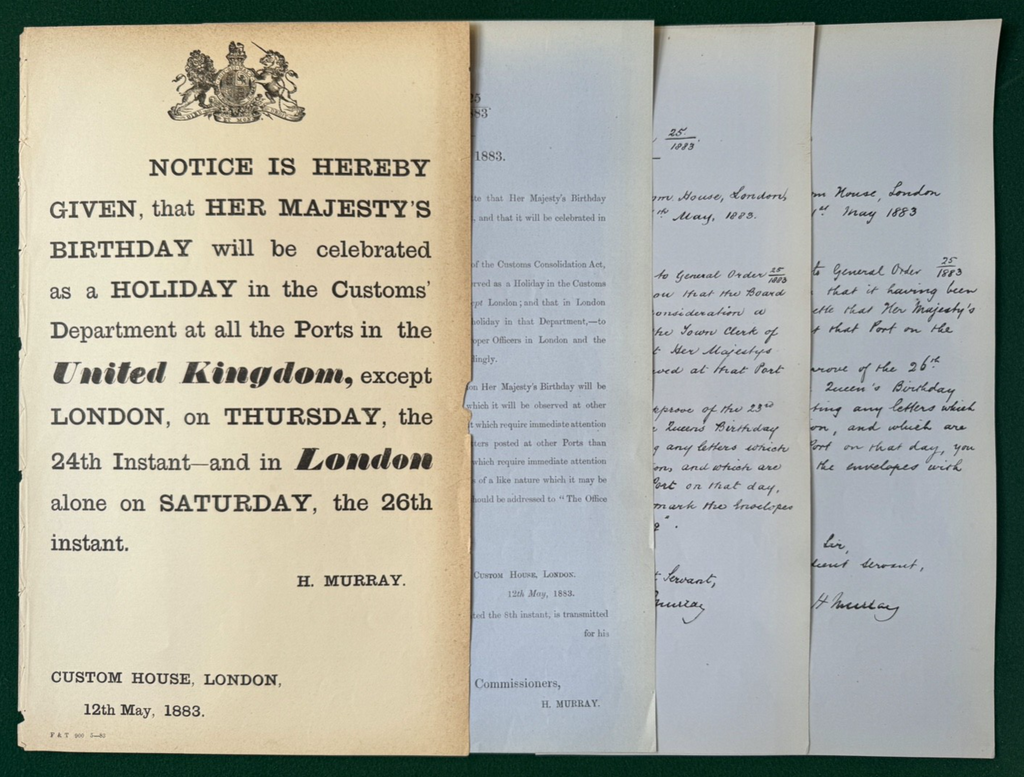 NOTICE IS HEREBY
GIVEN, that HER MAJESTY'S
BIRTHDAY will be celebrated
as a HOLIDAY in the Customs'
Department at all the Ports in the
United Kingdom, except
LONDON, on THURSDAY, the
24th Instant—and in London
alone on SATURDAY, the 26th
instant.
H. MURRAY.
CUSTOM HOUSE, LONDON,
12th May, 1883.
25
83
1883.
te that Her Majesty's Birthday
, and that it will be celebrated in
of the Customs Consolidation Act,
rved as a Holiday in the Customs
ept London; and that in London
holiday in that Department,—to
oper Officers in London and the
dingly.
on Her Majesty's Birthday will be
which it will be observed at other
t which require immediate attention
ters posted at other Ports than
which require immediate attention
s of a like nature which it may be
hould be addressed to "The Office
CUSTOM HOUSE, LONDON.
12th May, 1883.
ted the 8th instant, is transmitted
for his
Commissioners,
H. MURRAY.
25
1883.
om House, London,
th May, 1883.
to General Order 25/1883
ou that the Board
onsideration a
he Town Clerk of
t Her Majestys
ved at that Port
pprove of the 23rd
Queens Birthday
g any letters which
on, and which are
Port on that day,
mark the envelopes
t Servant,
Murray
om House, London
1st May 1883
to General Order 25/1883
that it having been
ettle that Her Majesty's
t that Port on the
prove of the 26th
Queen's Birthday
ting any letters which
on, and which are
Port on that day, you
the envelopes with
Sir,
dient servant,
H Murray